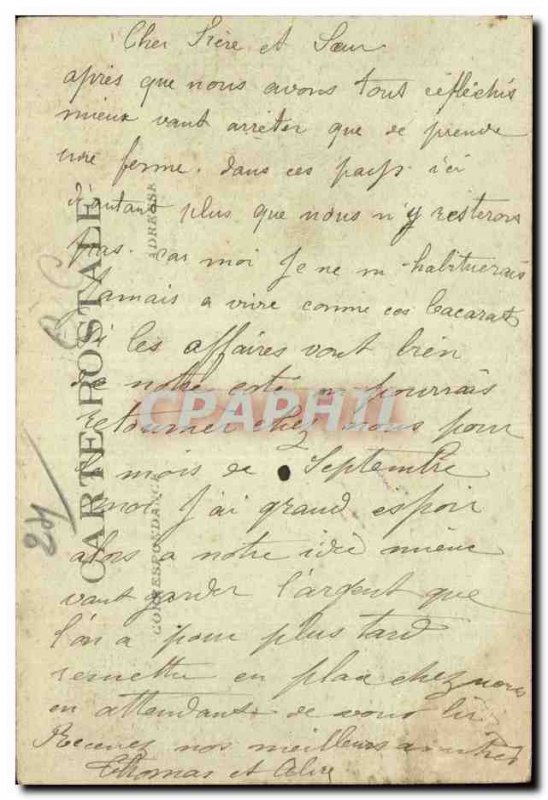 Cher Frère et Sœur
après que nous avons tout réfléchis
mieux vaut arrêter que de prendre
une ferme. dans ces pays ici
d'autant plus que nous n'y resterons
pas. car moi Je ne m'habituerais
Jamais a vivre comme ces
Si les affaires vont bien
de notre coté n pourrais
retourner chez nous pour
le mois de Septembre
moi J'ai grand espoir
alors a notre idée mieux
vaut garder l'argent que
l'on a pour plus tard
remettre en place chez nous
en attendant de vous lir
Recevez nos meilleurs amitiés
Thomas et
CARTE POSTALE
CORRESPONDANCE
ADRESSE
CPAPHIL